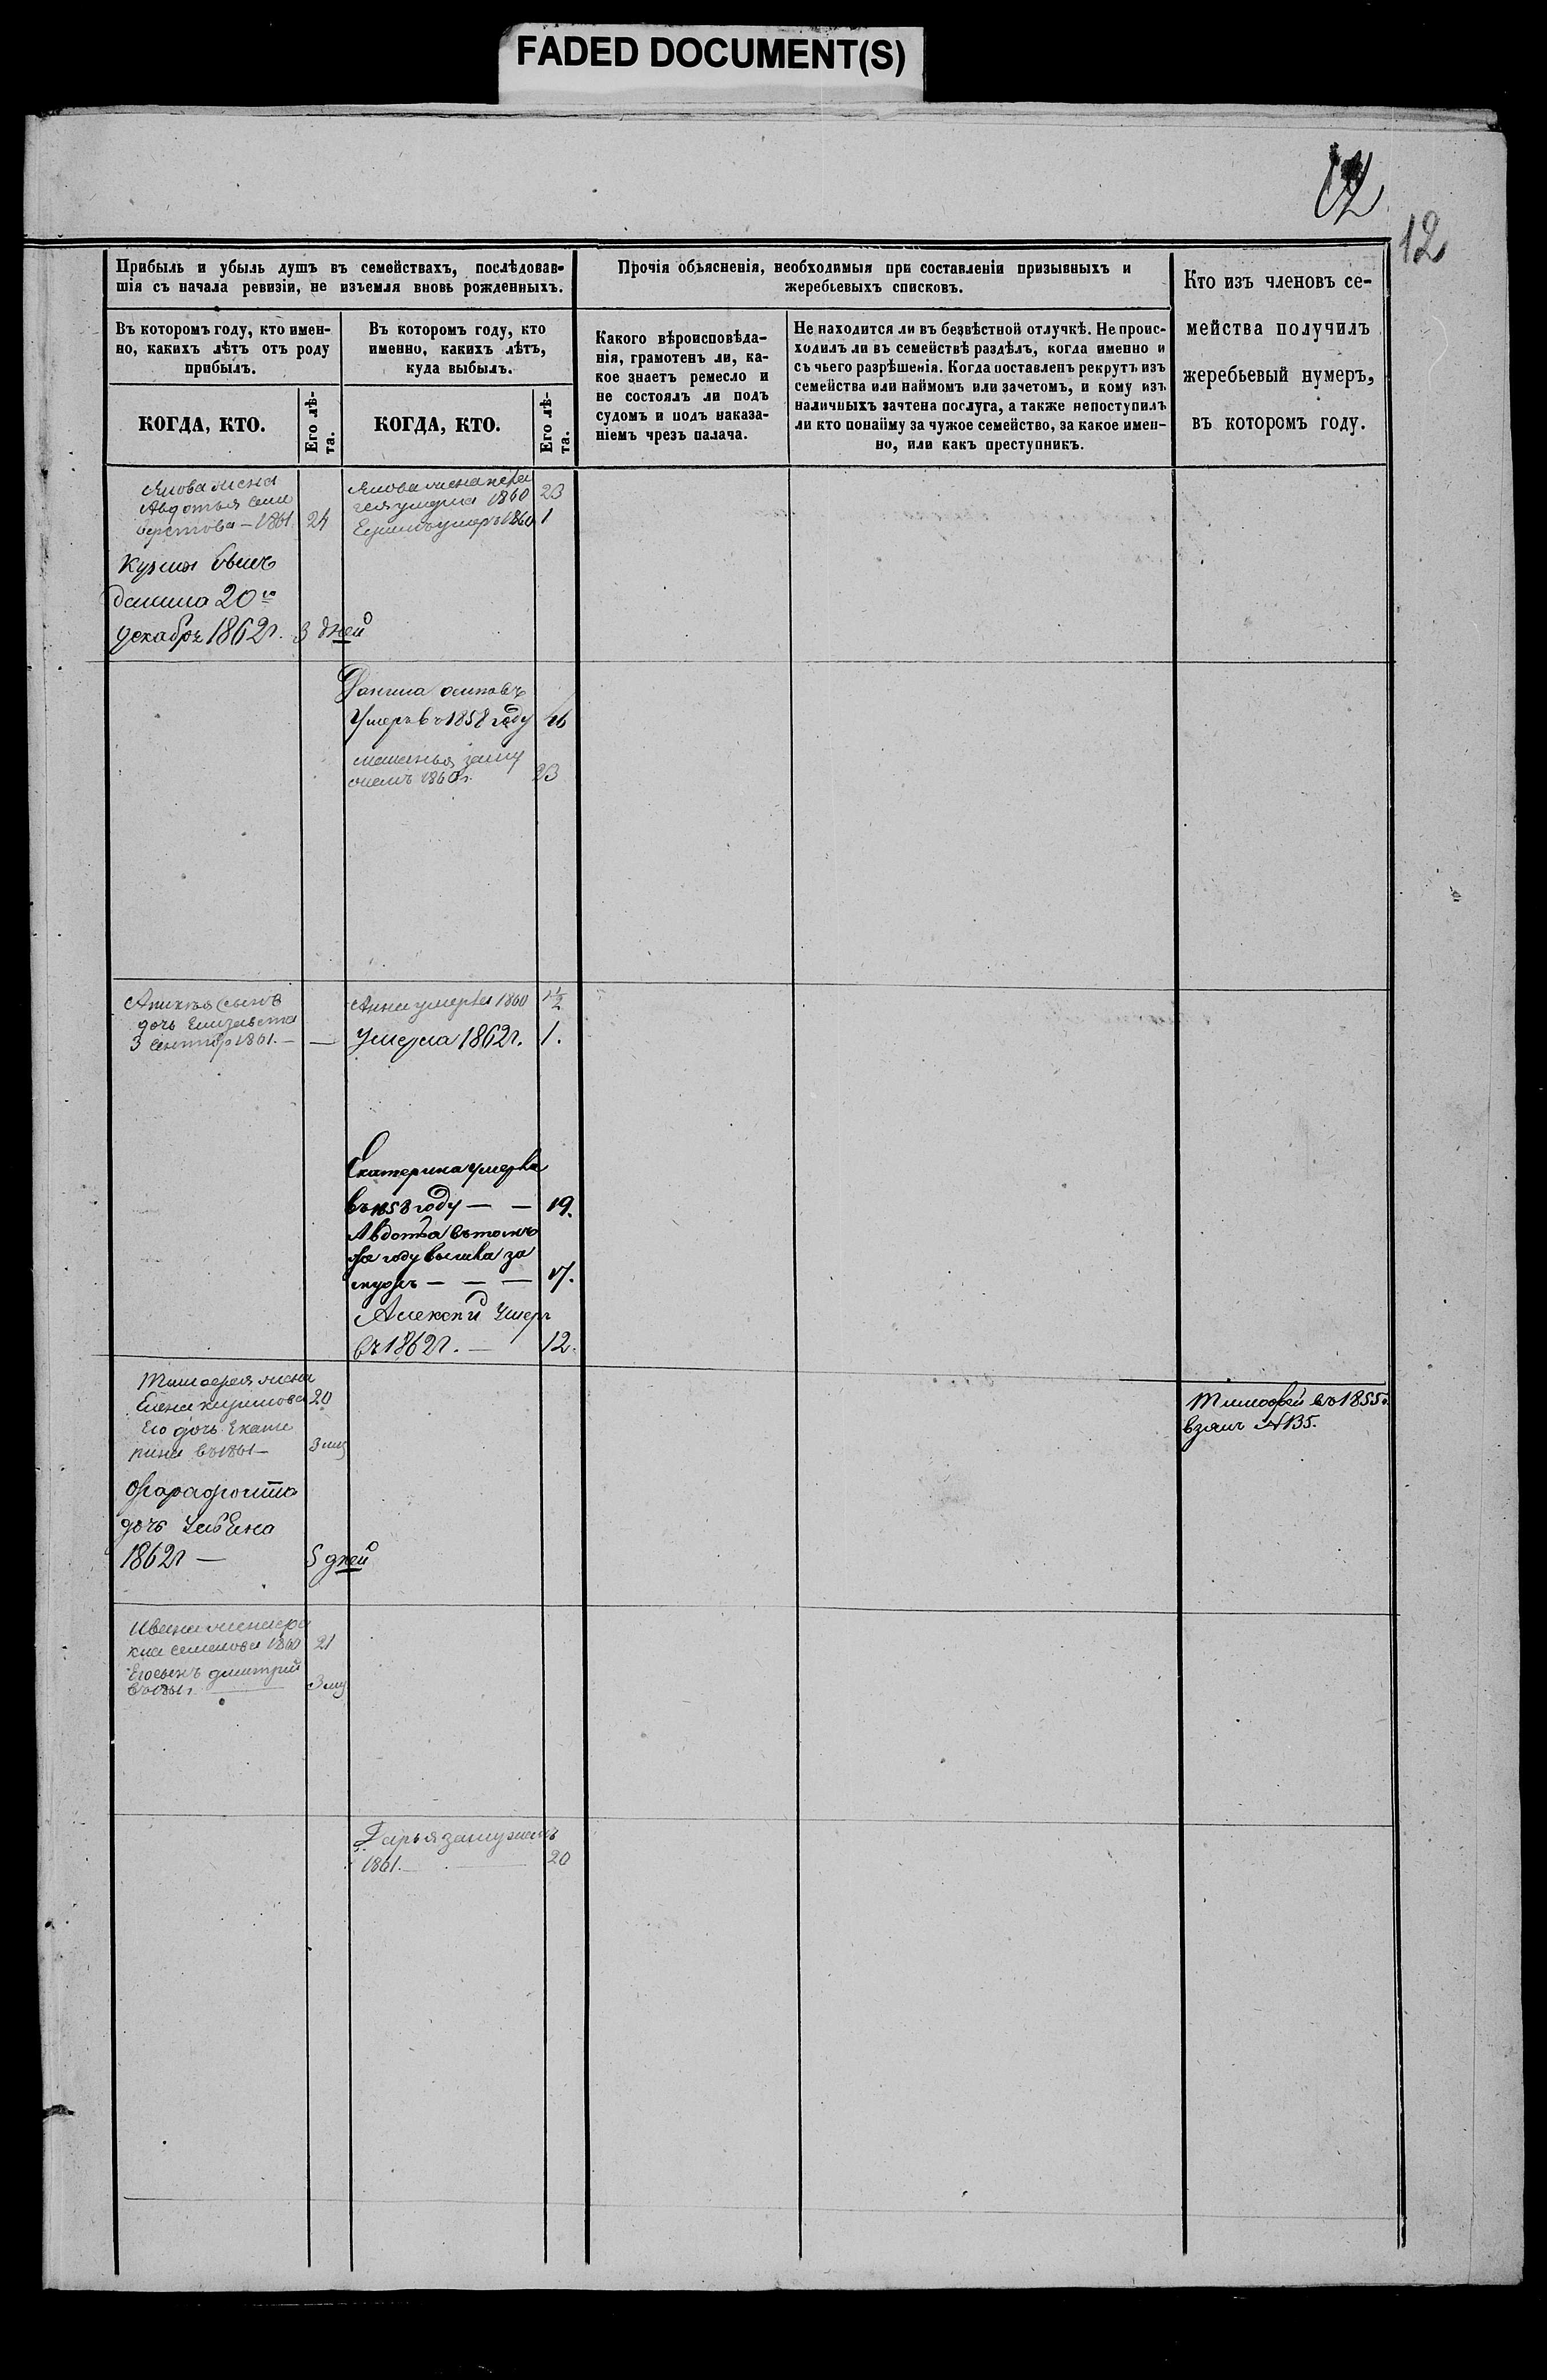 FADED DOCUMENT(S)
12
12
Прибыль и убыль душъ въ семействахъ, послѣдовав-
шія съ начала ревизіи, не изъемля вновь рожденныхъ.
Прочія объясненія, необходимыя при составленіи призывныхъ и
жеребьевыхъ списковъ.
Кто изъ членовъ се-
мейства получилъ
жеребьевый нумеръ,
въ которомъ году.
Въ которомъ году, кто имен-
но, какихъ лѣтъ отъ роду
прибылъ.
Въ которомъ году, кто
именно, какихъ лѣтъ,
куда выбылъ.
Какого вѣроисповѣда-
нія, грамотенъ ли, ка-
кое знаетъ ремесло и
не состоялъ ли подъ
судомъ и подъ наказа-
ніемъ чрезъ палача.
Не находится ли въ безвѣстной отлучкѣ. Не проис-
ходилъ ли въ семействѣ раздѣлъ, когда именно и
съ чьего разрѣшенія. Когда поставленъ рекрутъ изъ
семейства или наймомъ или зачетомъ, и кому изъ
наличныхъ зачтена послуга, а также непоступилъ
ли кто понайму за чужое семейство, за какое имен-
но, или какъ преступникъ.
КОГДА, КТО.
Его лѣ-
та.
КОГДА, КТО.
Его лѣ-
та.
жена
Авдотья Сели
верстова — 1861 24
жена 23
умерла 1860
умеръ 1860 1
сынъ
данила 20го
декабря 1862г. 3 дней
осиповъ
Умеръ въ 1858 году
заму
жемъ 1860г. 23
сынъ
дочь Елизавета
3 Сентябр 1861. —
Анна умерла 1860 1½
Умерла 1862г. 1.
Екатерина умерла
въ 1858 году — — 19.
Авдотья въ томъ
же году вышла за
мужъ — — — 17.
Алексей Умеръ
въ 1862г. — 12.
Тимофея жена
Елена 20
Его дочь Екате
рина въ 1861 — 3 мц
дочь
1862г — 5 дней
Тимофей въ 1855г.
взялъ №135.
Ивана жена
Семенова 1860 21
Его сынъ дмитрий
въ 1861г. — 3 мц
Дарья замужемъ
1861. — 20